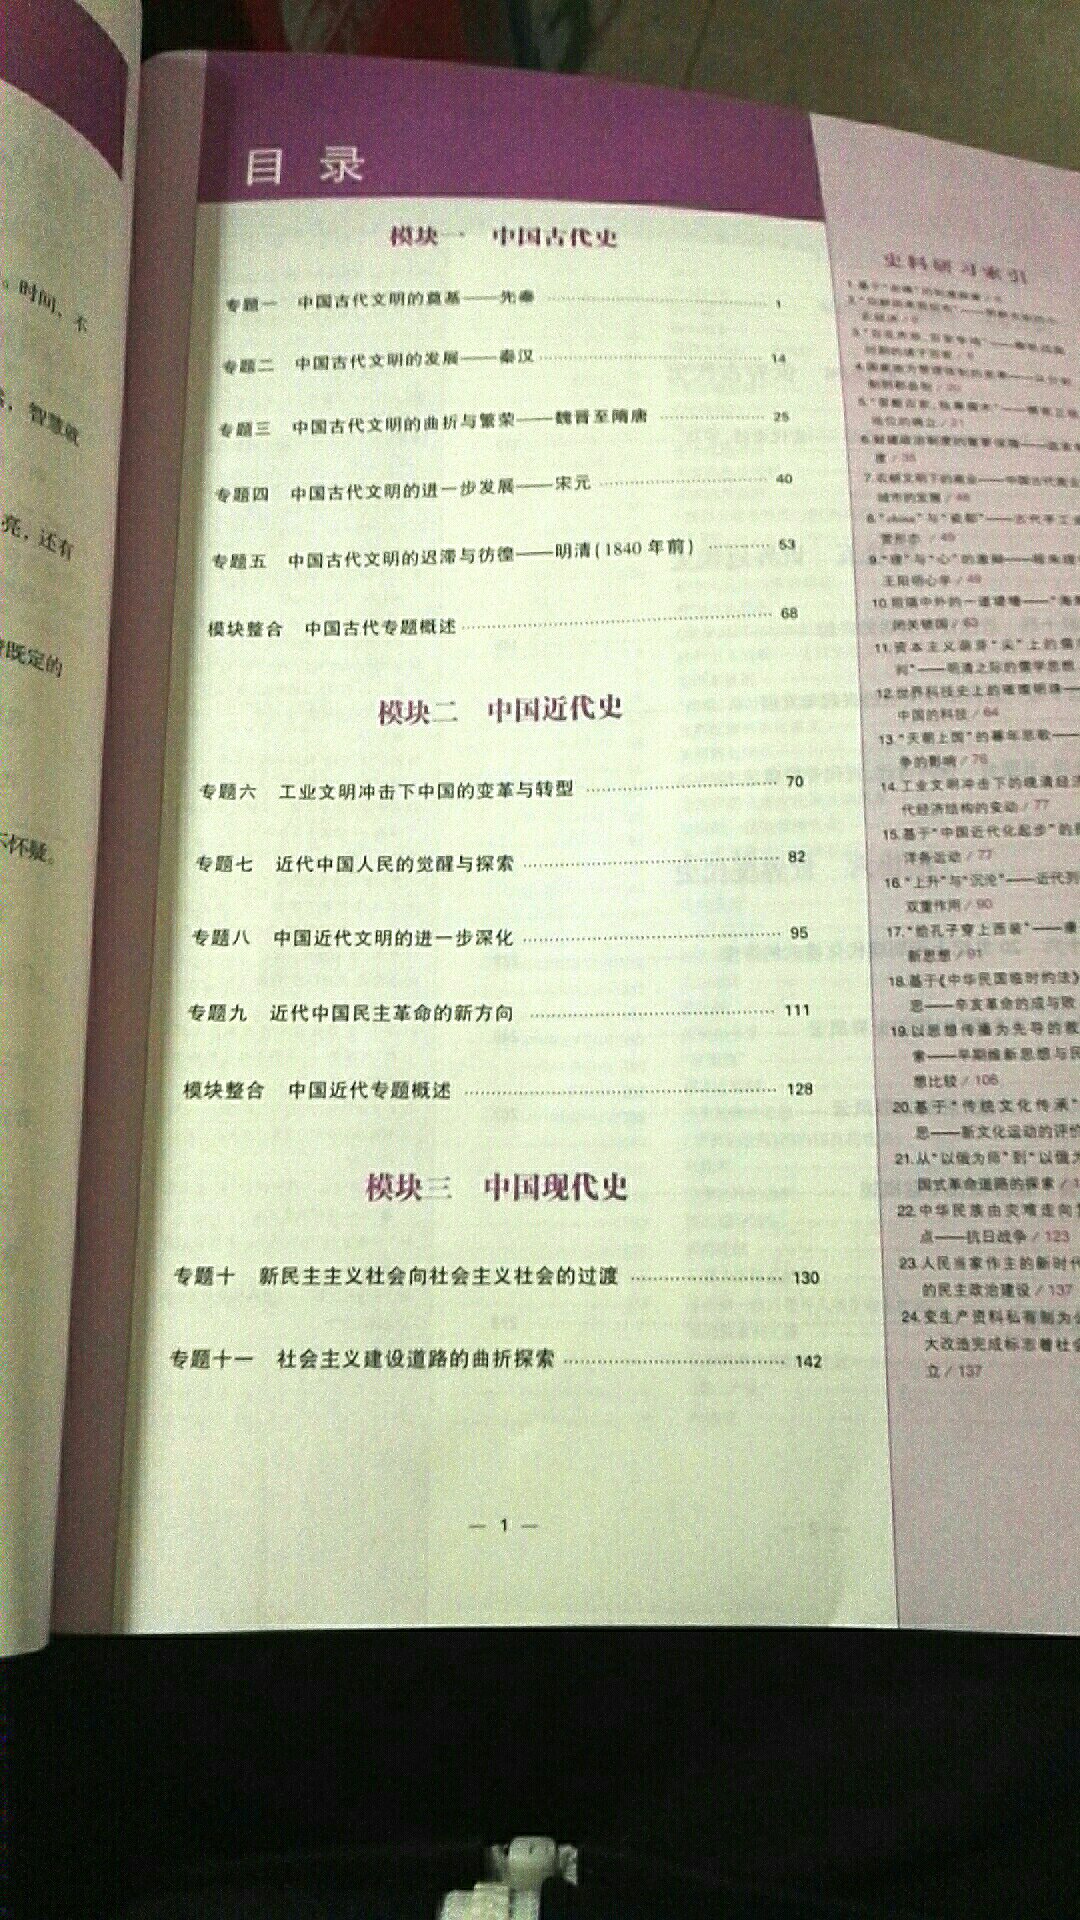 。时间、不
智慧就
亮，还有
既定的
不怀疑。
目 录
模块一 中国古代史
专题一 中国古代文明的奠基——先秦 1
专题二 中国古代文明的发展——秦汉 14
专题三 中国古代文明的曲折与繁荣——魏晋至隋唐 25
专题四 中国古代文明的进一步发展——宋元 40
专题五 中国古代文明的迟滞与彷徨——明清(1840年前) 53
模块整合 中国古代专题概述 68
模块二 中国近代史
专题六 工业文明冲击下中国的变革与转型 70
专题七 近代中国人民的觉醒与探索 82
专题八 中国近代文明的进一步深化 95
专题九 近代中国民主革命的新方向 111
模块整合 中国近代专题概述 128
模块三 中国现代史
专题十 新民主主义社会向社会主义社会的过渡 130
专题十一 社会主义建设道路的曲折探索 142
— 1 —
史料研习索引
7.农耕文明下的商业——中国古代商业
城市的发展/48
8."china"与"瓷都"——古代手工业
营形态/49
9."理"与"心"的激辩——程朱理
王阳明心学/49
10.阻隔中外的一道堤墙——"海禁
闭关锁国/63
11.资本主义萌芽"尖"上的儒
判"——明清之际的儒学思想
12.世界科技史上的璀璨明珠——
中国的科技/64
13."天朝上国"的暮年悲歌——
争的影响/76
14.工业文明冲击下的晚清经济
代经济结构的变动/77
15.基于"中国近代化起步"的
洋务运动/77
16."上升"与"沉沦"——近代列
双重作用/90
17."给孔子穿上西装"——康
新思想/91
18.基于《中华民国临时约法》
思——辛亥革命的成与败
19.以思想传播为先导的救
索——早期维新思想与民
想比较/106
20.基于"传统文化传承"
思——新文化运动的评价
21.从"以俄为师"到"以俄为
国式革命道路的探索/1
22.中华民族由灾难走向
点——抗日战争/123
23.人民当家作主的新时代
的民主政治建设/137
24.变生产资料私有制为公
大改造完成标志着社会
立/137